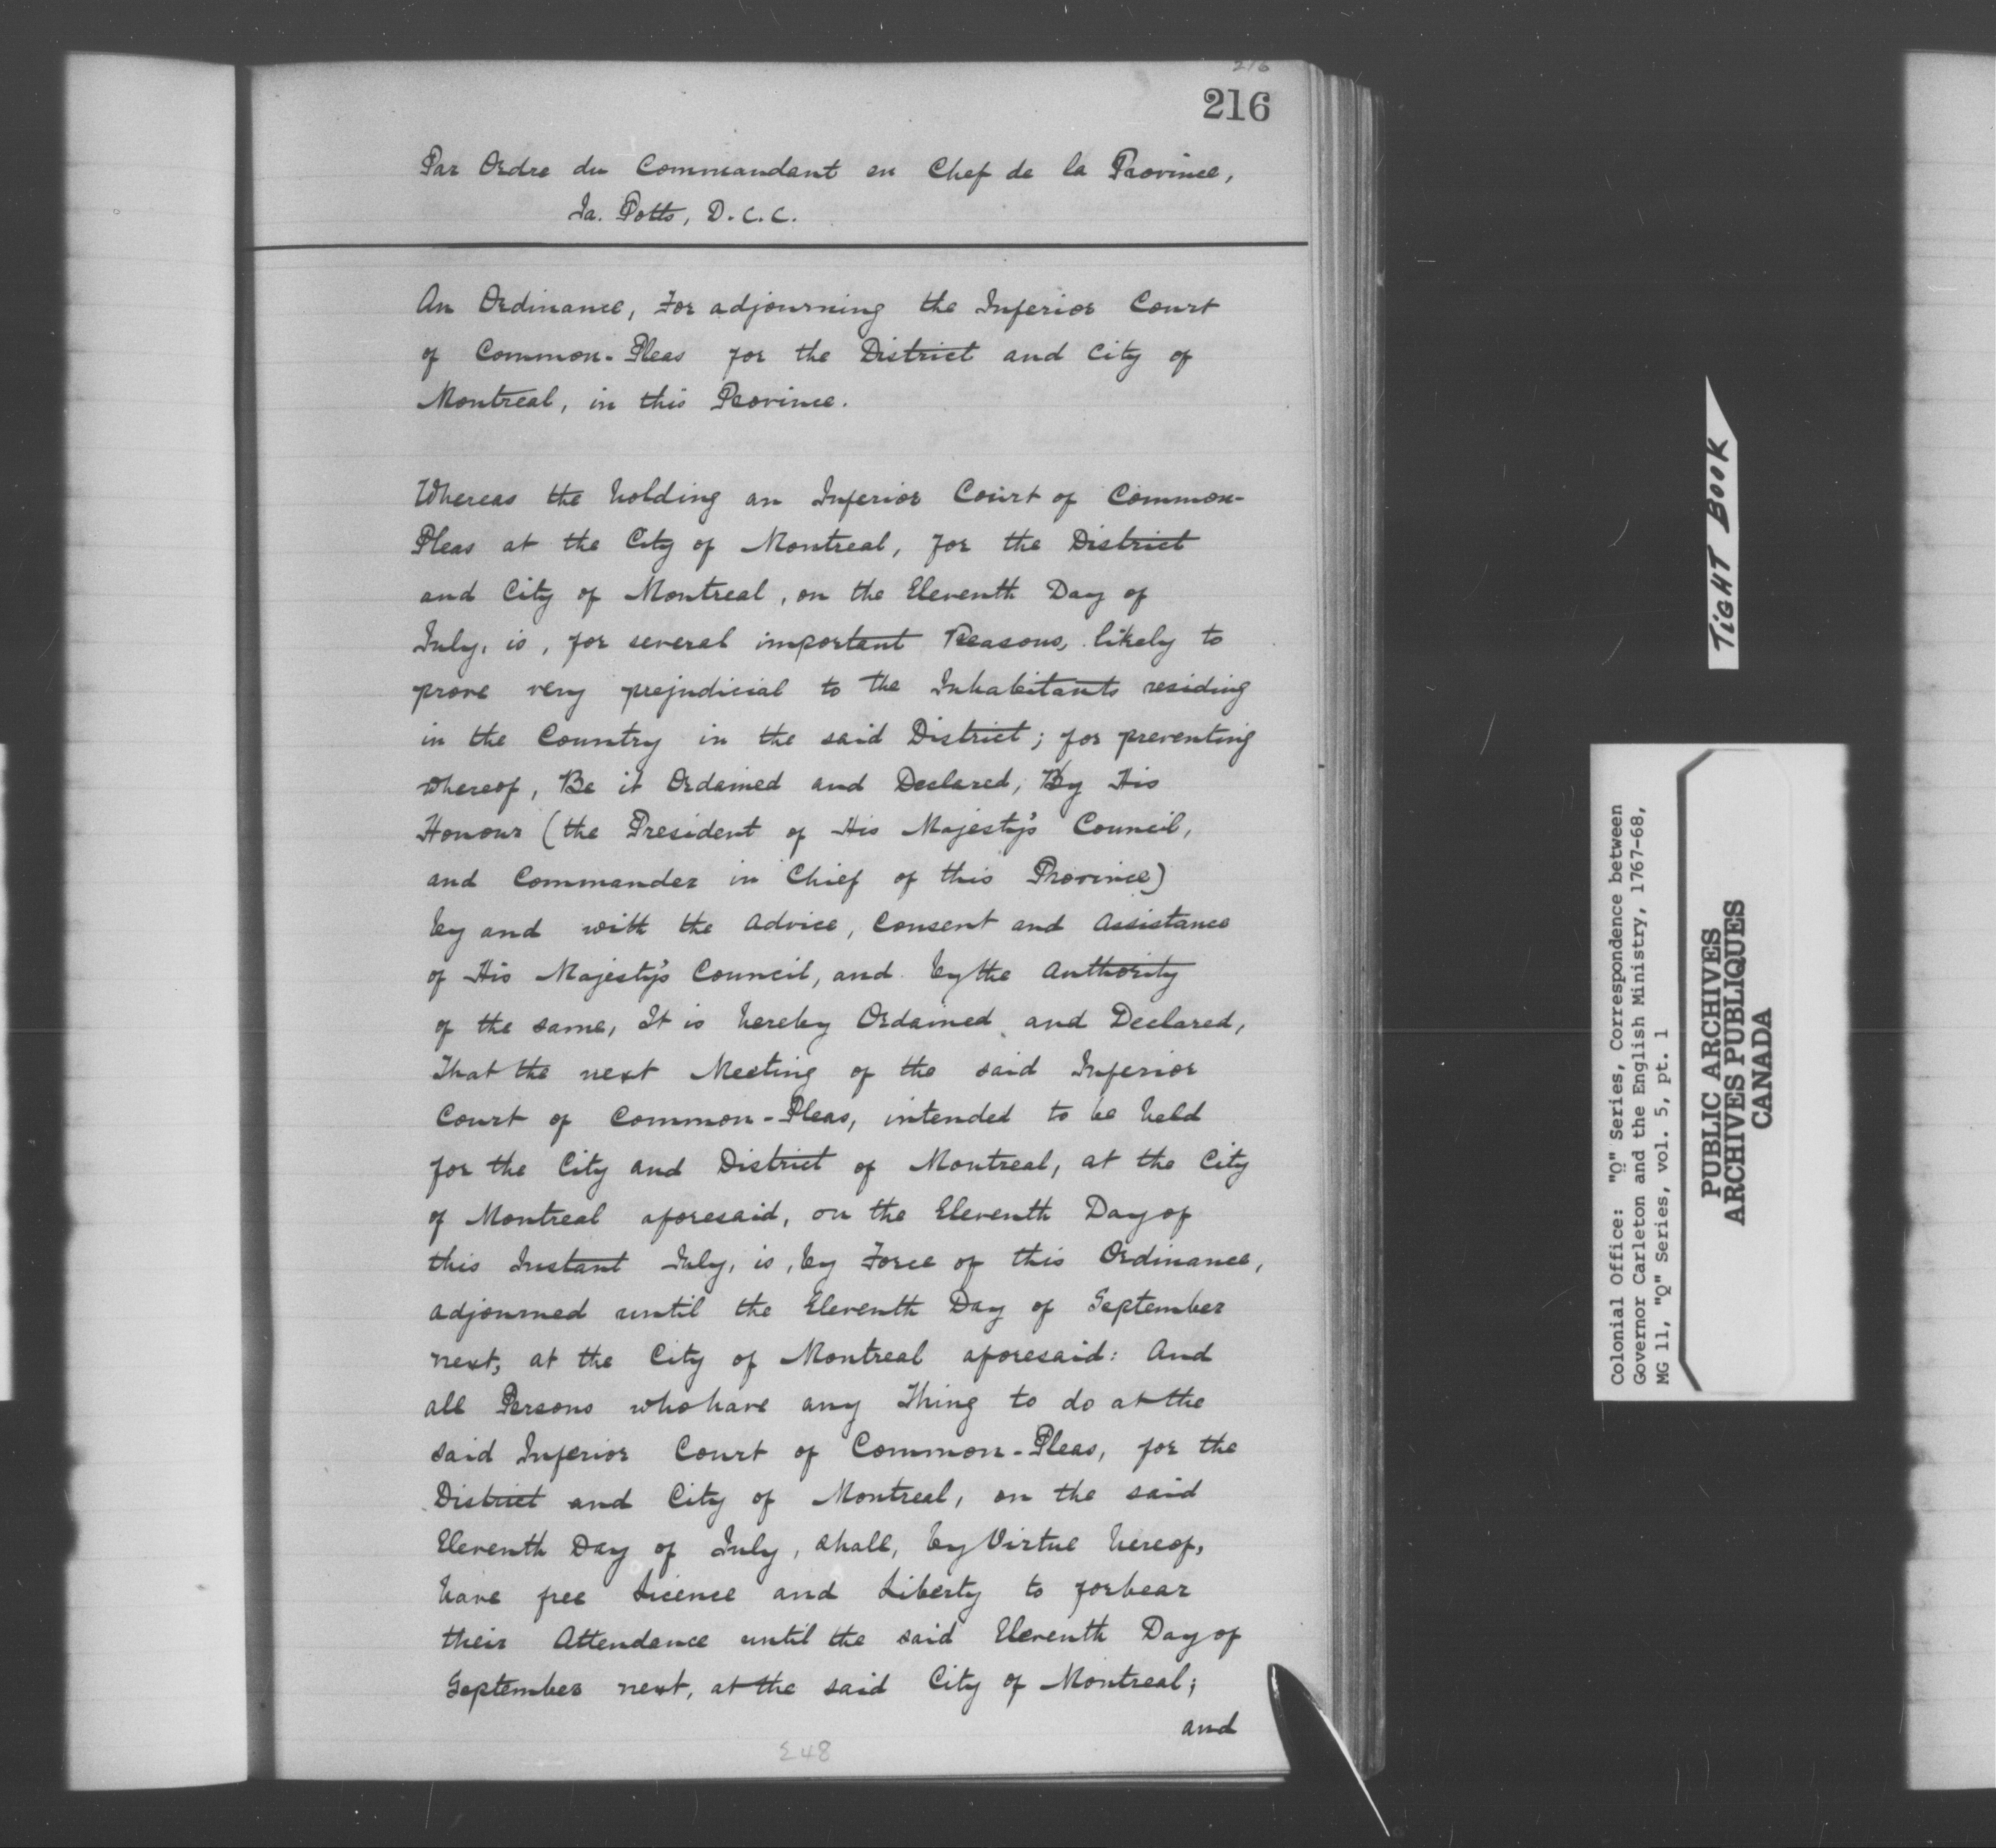 216
216
Par Ordre du Commandant en Chef de la Province,
Ja. Potts, D.C.C.
An Ordinance, For adjourning the Inferior Court
of Common-Pleas for the District and City of
Montreal, in this Province.
Whereas the holding an Inferior Court of Common-
Pleas at the City of Montreal, for the District
and City of Montreal, on the Eleventh Day of
July, is, for several important Reasons, likely to
prove very prejudicial to the Inhabitants residing
in the Country in the said District; for preventing
whereof, Be it Ordained and Declared, By His
Honour (the President of His Majesty's Council,
and Commander in Chief of this Province)
by and with the Advice, Consent and Assistance
of His Majesty's Council, and by the Authority
of the same, It is hereby Ordained and Declared,
That the next Meeting of the said Inferior
Court of Common-Pleas, intended to be held
for the City and District of Montreal, at the City
of Montreal aforesaid, on the Eleventh Day of
this Instant July, is, by Force of this Ordinance,
adjourned until the Eleventh Day of September
next, at the City of Montreal aforesaid: And
all Persons who have any Thing to do at the
said Inferior Court of Common-Pleas, for the
District and City of Montreal, on the said
Eleventh Day of July, shall, by Virtue hereof,
have free Licence and Liberty to forbear
their Attendance until the said Eleventh Day of
September next, at the said City of Montreal;
and
248
TIGHT BOOK
Colonial Office: "Q" Series, Correspondence between
Governor Carleton and the English Ministry, 1767-68,
MG 11, "Q" Series, vol. 5, pt. 1
PUBLIC ARCHIVES
ARCHIVES PUBLIQUES
CANADA